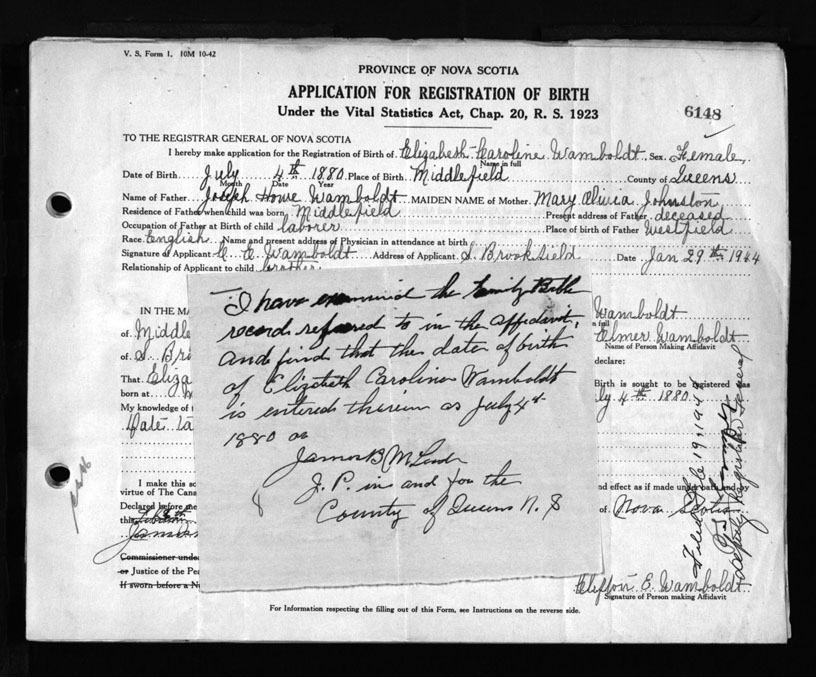 V. S. Form 1. 10M 10-42
PROVINCE OF NOVA SCOTIA
APPLICATION FOR REGISTRATION OF BIRTH
Under the Vital Statistics Act, Chap. 20, R. S. 1923
6148
TO THE REGISTRAR GENERAL OF NOVA SCOTIA
I hereby make application for the Registration of Birth of Elizabeth Caroline Wamboldt, Sex Female
Name in full
Date of Birth July 4th 1880 Place of Birth Middlefield County of Queens
Month Date Year
Name of Father Joseph Howe Wamboldt MAIDEN NAME of Mother Mary Olivia Johnston
Residence of Father when child was born Middlefield Present address of Father deceased
Occupation of Father at Birth of child laborer Place of birth of Father Westfield
Race English Name and present address of Physician in attendance at birth
Signature of Applicant C E Wamboldt Address of Applicant S. Brookfield Date Jan 29th 1944
Relationship of Applicant to child brother
I have examined the family Bible
record refered to in the affidavit,
and find that the date of birth
of Elizebeth Caroline Wamboldt
is entered therein as July 4th
1880
J. P. in and for the
County of Queens N. S
IN THE MA
Wamboldt
of Middle
Elmer Wamboldt
Name of Person Making Affidavit
of S. Br
declare:
That Eliza
Birth is sought to be registered was
born at
ly 4th 1880
My knowledge of
Date
I make this so
and effect as if made under oath and by
virtue of The Cana
Declared before me
of Nova Scotia
this
Commissioner unde
or Justice of the Pea
If sworn before a N
Filed Feb 19, 1944
Deputy Registrar General
Clifton E. Wamboldt
Signature of Person making Affidavit
For Information respecting the filling out of this Form, see Instructions on the reverse side.